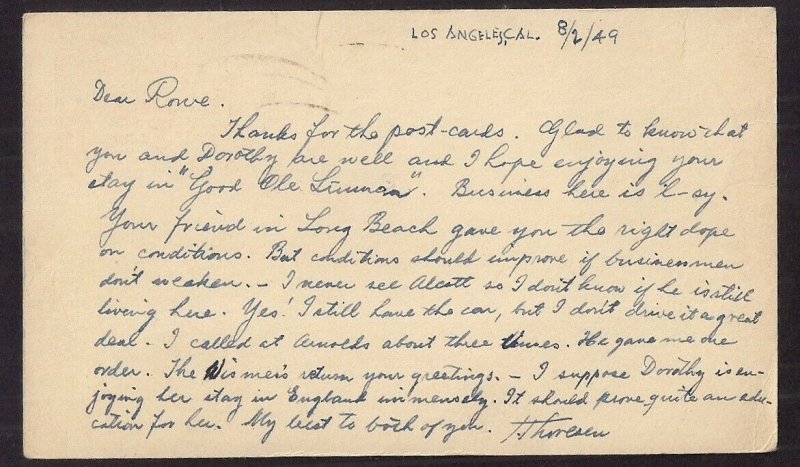 LOS ANGELES, CAL. 8/2/49
Dear Rowe.
Thanks for the post-cards. Glad to know that
you and Dorothy are well and I hope enjoying your
stay in "Good Ole
Business here is
Your friend in Long Beach gave you the right dope
on conditions. But conditions should improve if businessmen
don't weaken. - I never see Alcott so I don't know if he is still
living here. Yes! I still have the car, but I don't drive it a great
deal. - I called at Arnolds about three times. He gave me one
order. The return your greetings. - I suppose Dorothy is en-
joying her stay in England immensely. It should prove quite an edu-
cation for her. My best to both of you. Thoresen